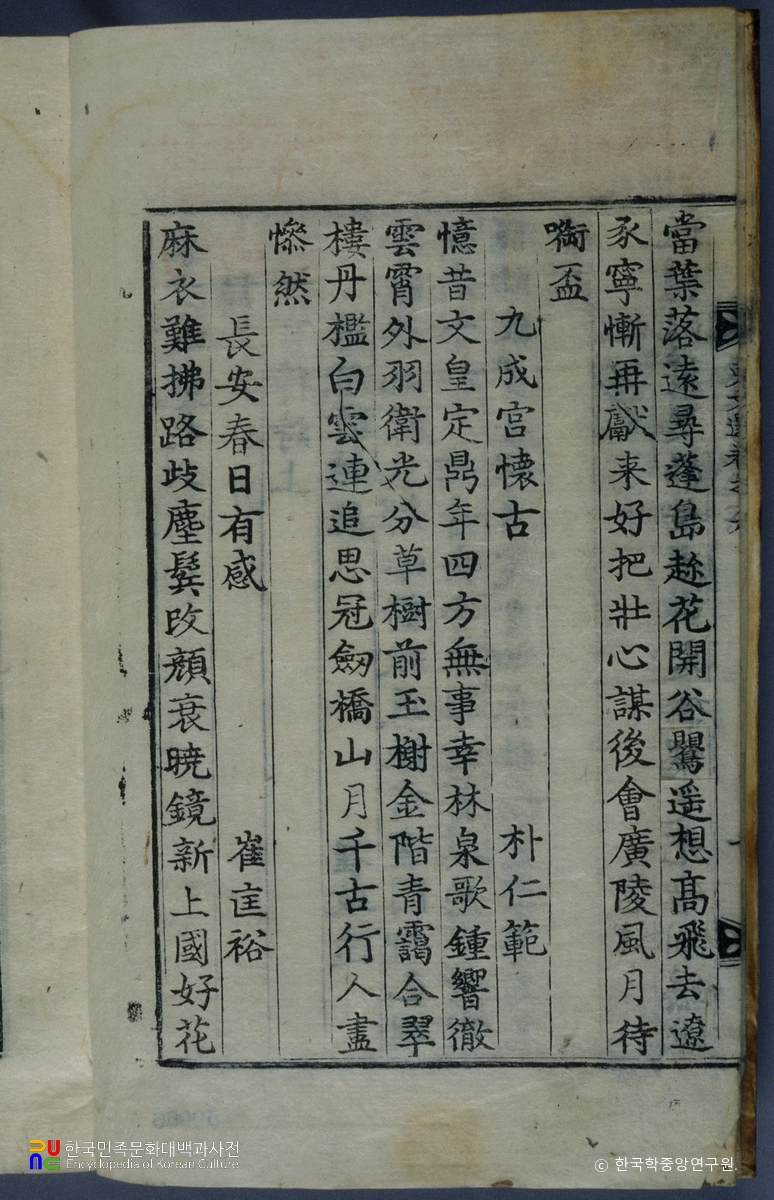 當葉落遠尋蓬島趂花開谷鸎遥想髙飛去遼
豕寧慚再獻来好把壯心謀後㑹廣陵風月待
銜盃
九成宫懐古 朴仁範
憶昔文皇定鼎年四方無事幸林泉歌鍾響徹
雲霄外羽衛光分草樹前玉榭金階青靄合翠
樓丹檻白雲連追思冠劒橋山月千古行人盡
慘然
長安春日有感 崔匡裕
麻衣難拂路歧塵鬂改顔衰曉鏡新上國好花
한국민족문화대백과사전
Encyclopedia of Korean Culture
© 한국학중앙연구원